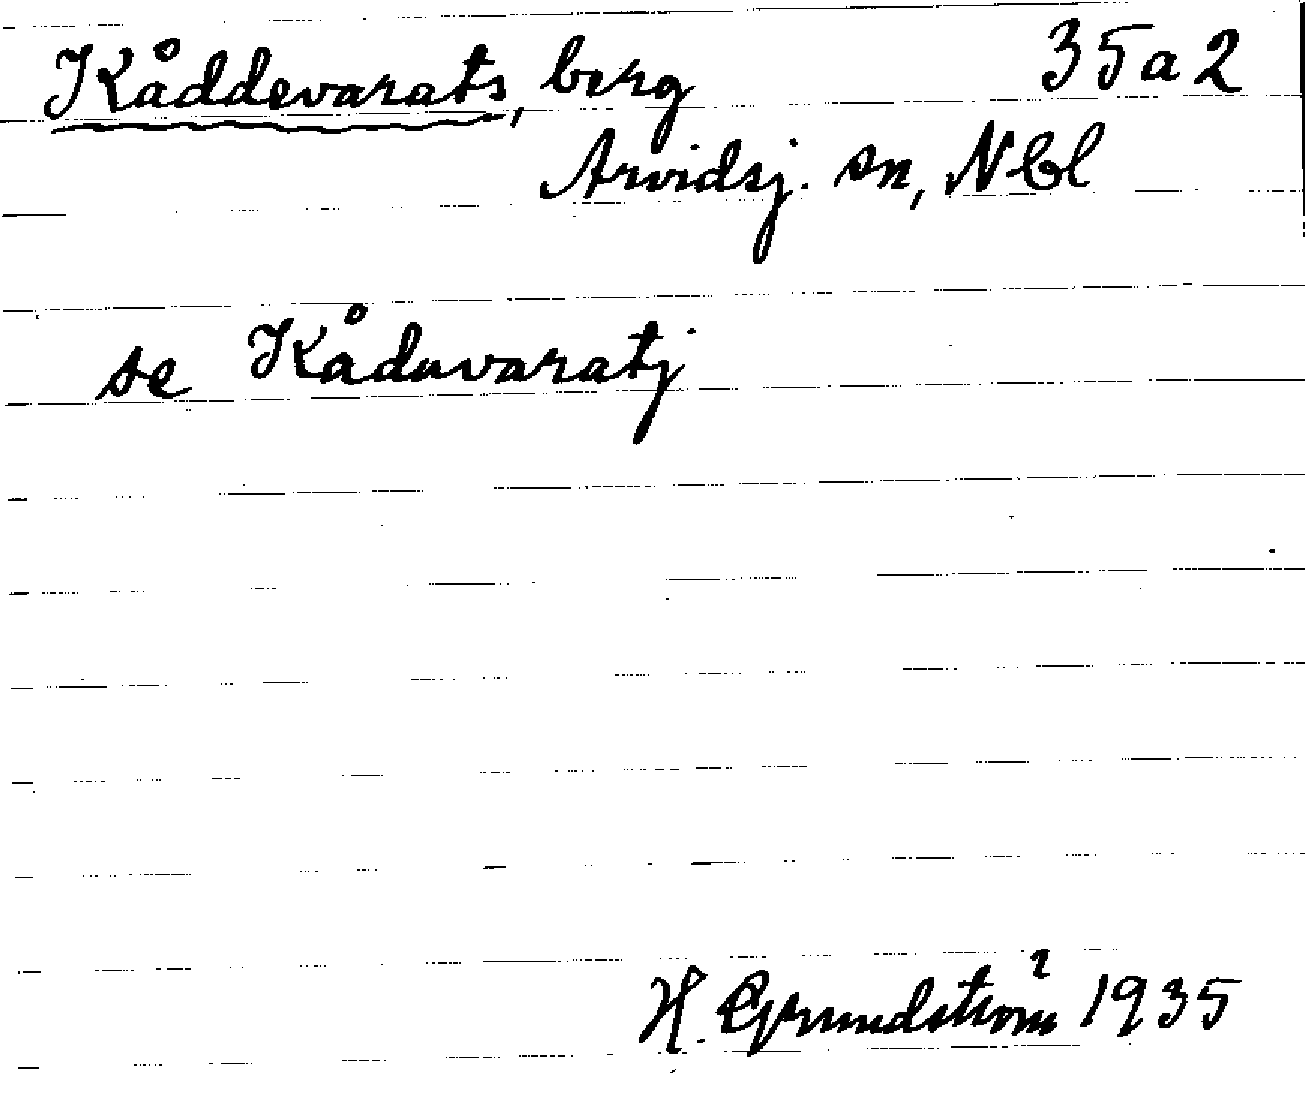 Kåddevarats, berg 35a2
Arvidsj. sn, Nbl
se Kåduvaratj
H. Grundström 1935